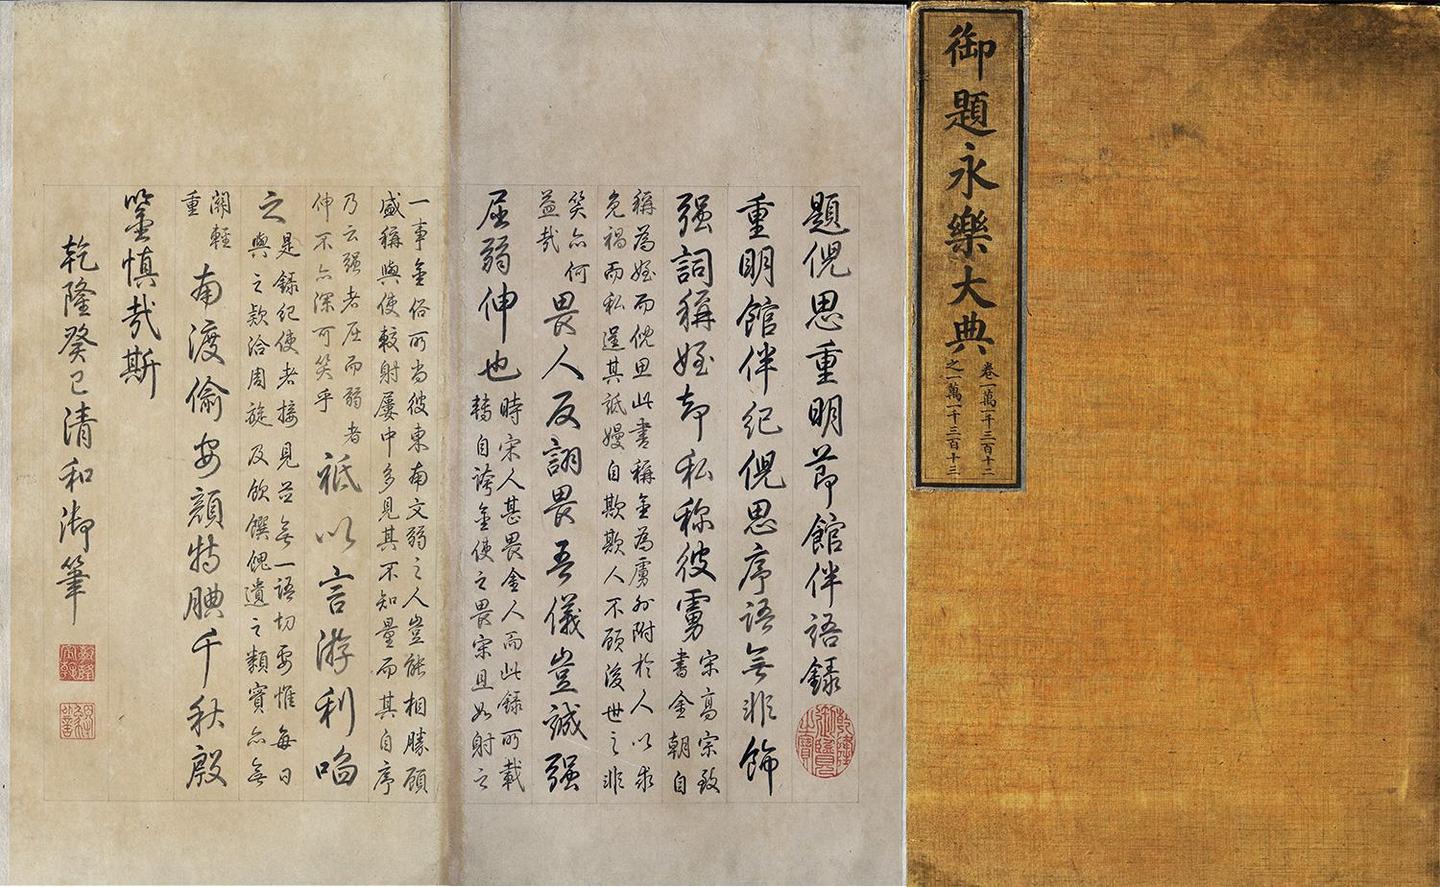 御題永樂大典
卷一萬一千三百十二
之一萬一千三百十三
題倪思重明節館伴語錄
重明館伴紀倪思序語無非飾
强詞稱姪却私称彼虜
宋高宗致
書金朝自
稱為姪而倪思此書稱金為虜外附於人以求
免禍而私逞其詆嫚自欺欺人不顧後世之非
笑亦何
益哉
畏人反詡畏吾儀豈誠强
屈弱伸也
時宋人甚畏金人而此錄所載
轉自誇金使之畏宋且如射之
一事金俗所尚彼東南文弱之人豈能相勝顧
盛稱與使較射屢中多見其不知量而其自序
乃云强者屈而弱者
伸不亦深可笑乎
祗以言游利啗
之
是錄紀使者接見竝無一語切要惟每日
與之欵洽周旋及飲饌餽遺之類實亦無
關輕
重
南渡偷安顏特腆千秋殷
鑒慎哉斯
乾隆癸巳清和御筆
乾隆御覽之寶